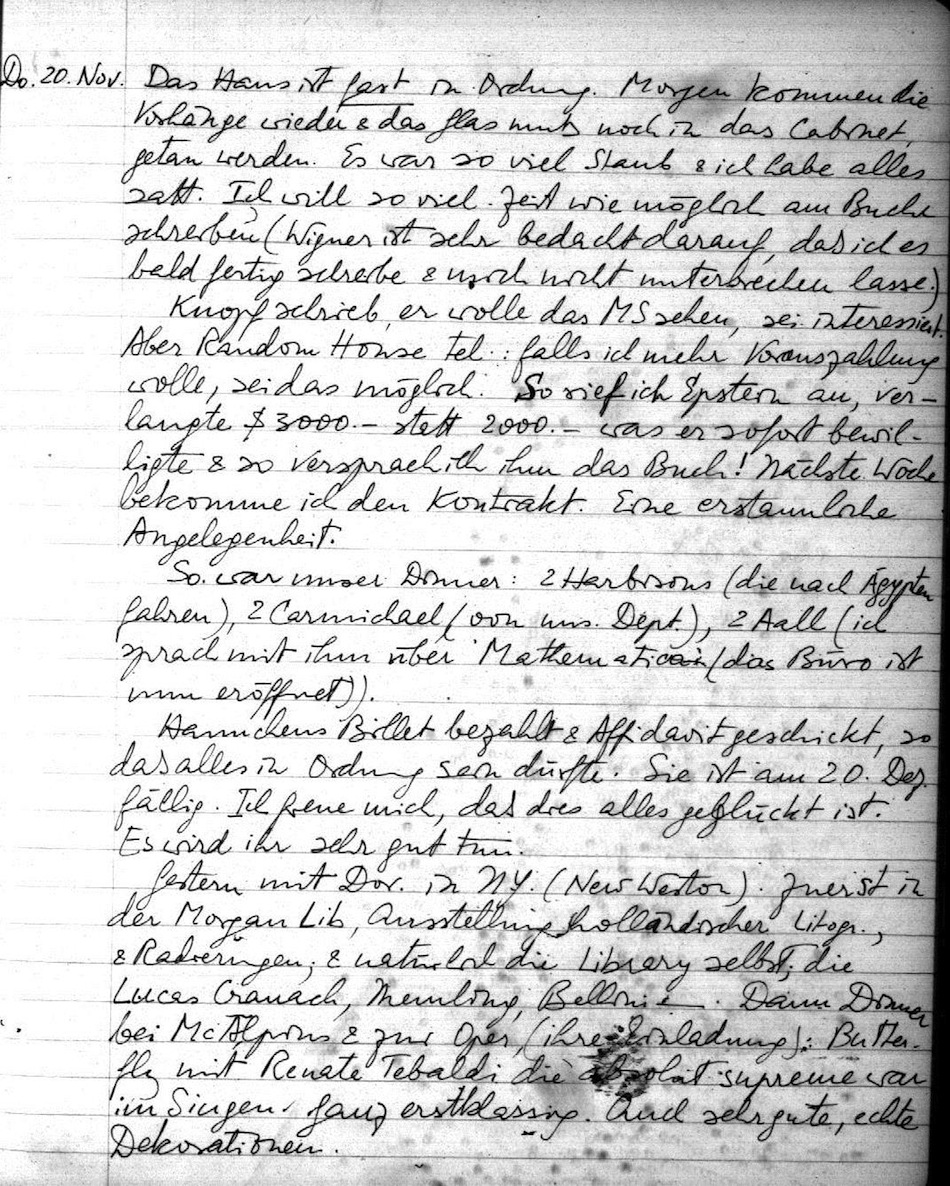 Do. 20. Nov. Das Haus ist fast in Ordnung. Morgen kommen die
Vorhänge wieder & das Glas muss noch in das Cabinet,
getan werden. Es war so viel Staub & ich habe alles
satt. Ich will so viel Zeit wie möglich am Buche
schreiben (Wigner ist sehr bedacht darauf, dass ich es
bald fertig schreibe & mich nicht unterbrechen lasse.)
Knopf schrieb, er wolle das MS sehen, sei interessiert.
Aber Random House tel.: falls ich mehr Vorauszahlung
wolle, sei das möglich. So rief ich Epstein an, ver-
langte $ 3000.- statt 2000.- was er sofort bewil-
ligte & so versprach ich ihm das Buch! Nächste Woche
bekomme ich den Kontrakt. Eine erstaunliche
Angelegenheit.
So. war unser Dinner: 2 Harbisons (die nach Ägypten
fahren), 2 Carmichael (von uns. Dept.), 2 Aall (ich
sprach mit ihm über Mathematica (das Büro ist
nun eröffnet)).
Hannchens Billet bezahlt & Affidavit geschickt, so
dass alles in Ordnung sein dürfte. Sie ist am 20. Dez.
fällig. Ich freue mich, dass dies alles geglückt ist.
Es wird ihr sehr gut tun.
Gestern mit Dor. in NY. (New Weston). Zuerst in
der Morgan Lib, Ausstellung holländischer Litogr.,
& Radierungen; & natürlich die Library selbst; die
Lucas Cranach, Memling, Bellini. Dann Dinner
bei McAlpins & zur Oper, (ihre Einladung): Butter-
fly mit Renate Tebaldi die absolut supreme war
im Singen. Ganz erstklassig. Auch sehr gute, echte
Dekorationen.